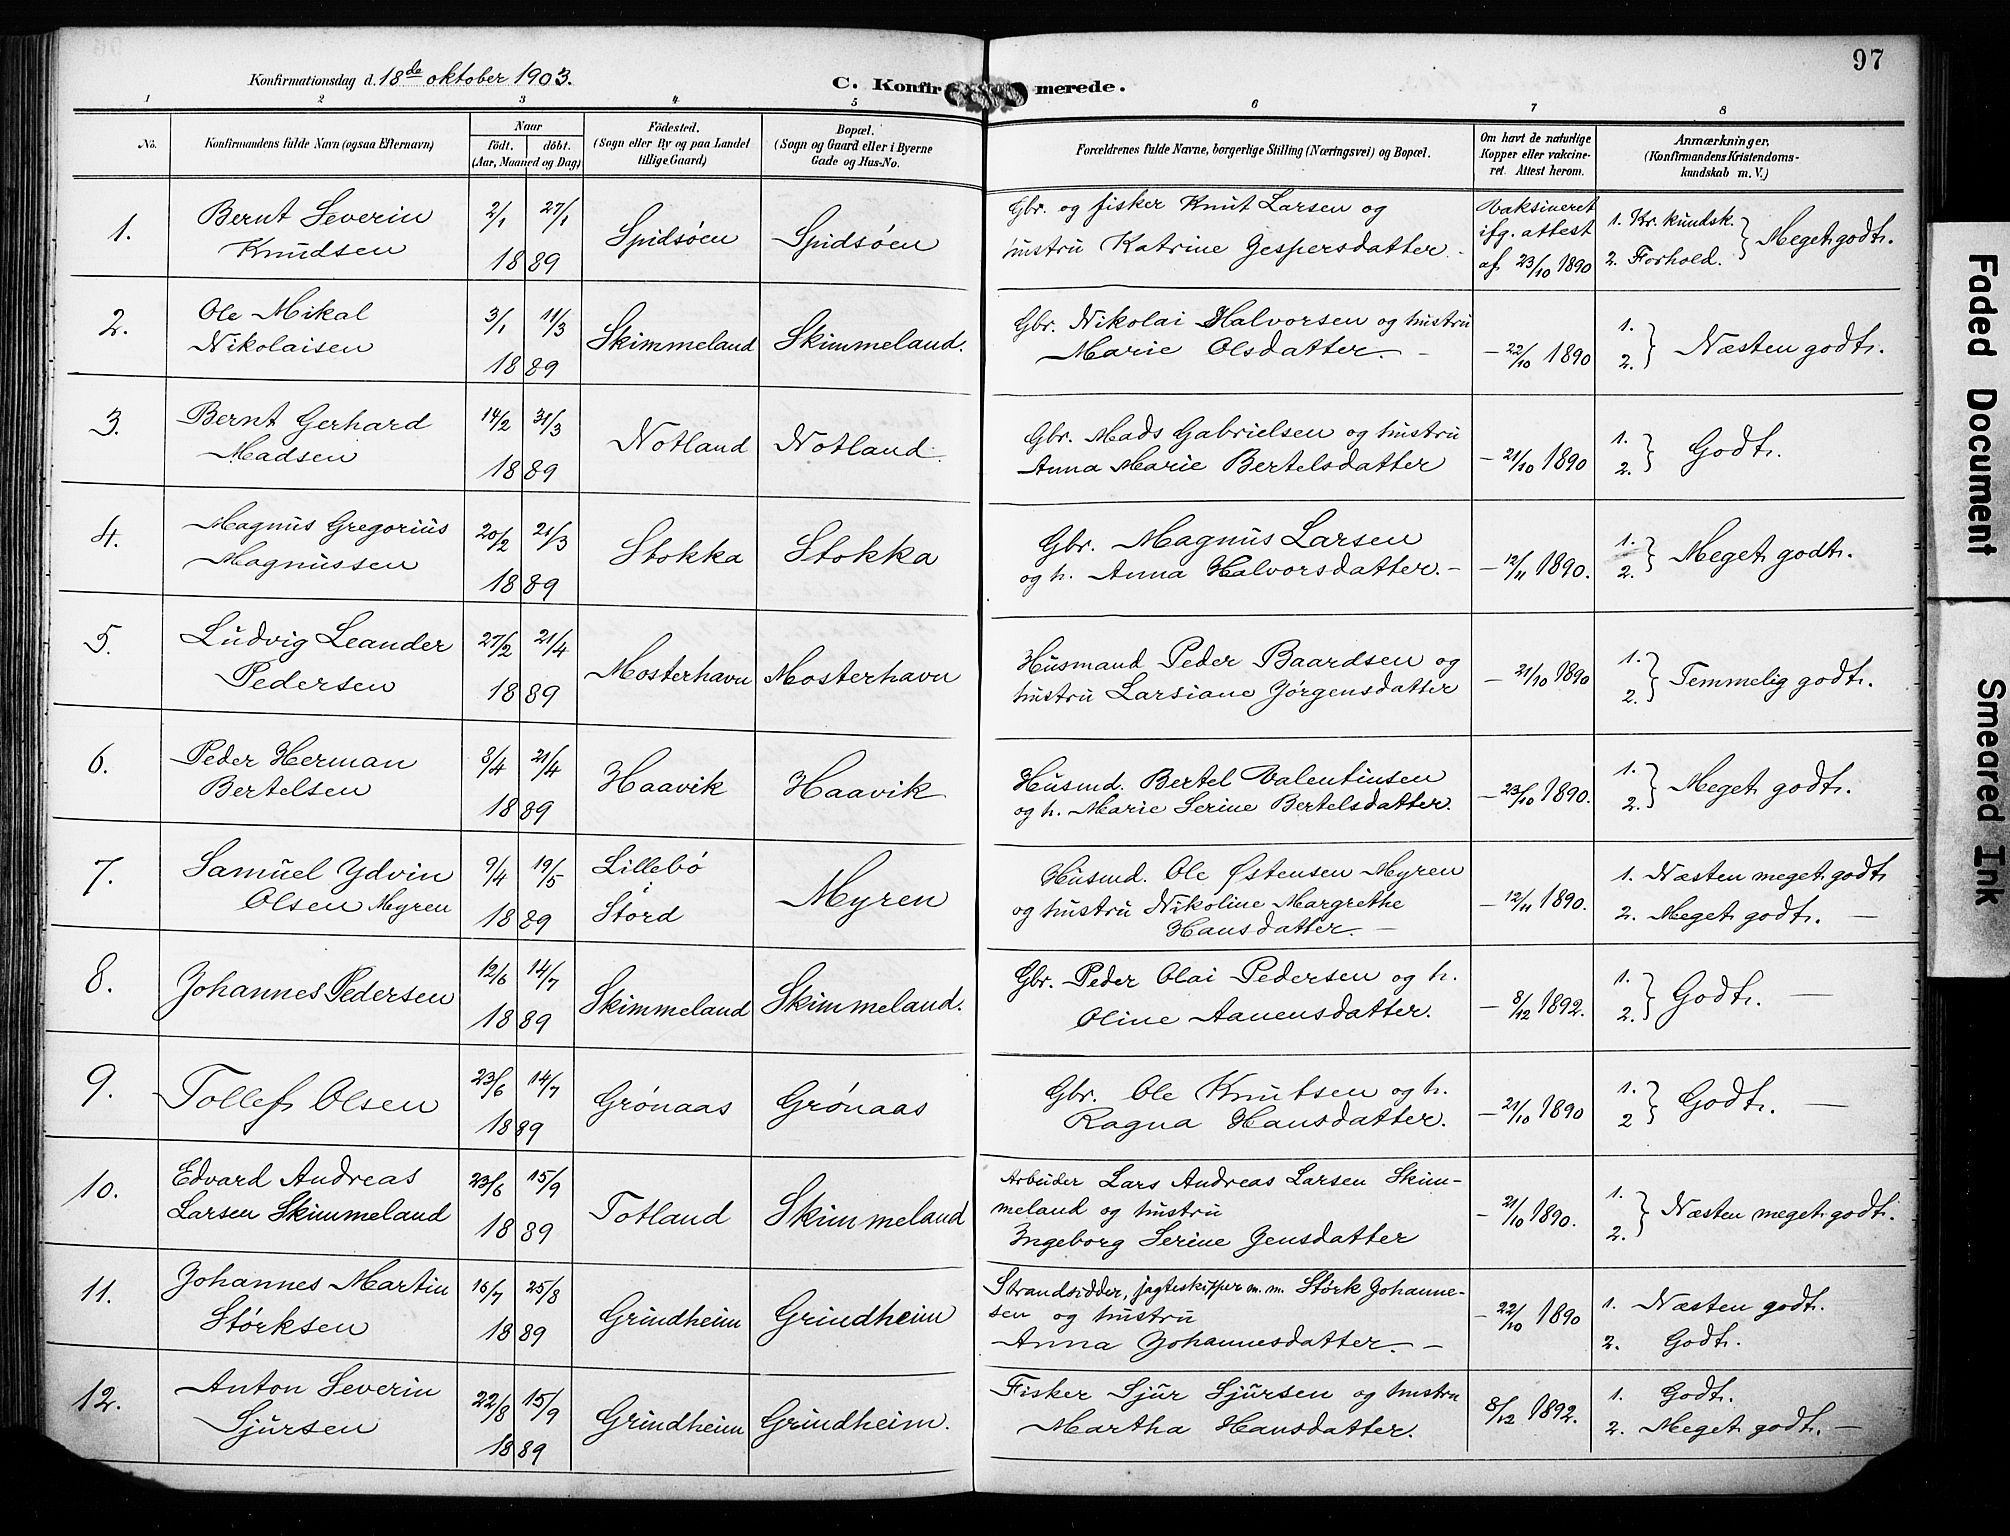 97
Konfirmationsdag d. 18de oktober 1903.
C. Konfirmerede.
1 2 3 4 5 6 7 8
No.
Konfirmandens fulde Navn (ogsaa Efternavn)
Naar
födt. döbt.
(Aar, Maaned og Dag)
Födested.
(Sogn eller By og paa Landet
tillige Gaard)
Bopæl.
(Sogn og Gaard eller i Byerne
Gade og Hus-No.
Forældrenes fulde Navne, borgerlige Stilling (Næringsvei) og Bopæl.
Om havt de naturlige
Kopper eller vakcine-
ret. Attest herom.
Anmærkninger,
(Konfirmandens Kristendoms-
kundskab m. V.)
1. Bernt Severin
Knudsen
2/1 27/1
1889
Spidsøen Spidsøen
Gbr. og fisker Knut Larsen og
hustru Katrine Jespersdatter.
Vaksineret
ifg. attest
af 23/10 1890
1. Kr. kundsk.
2. Forhold.
} Meget godt.
2. Ole Mikal
Nikolaisen
3/1 11/3
1889
Skimmeland Skimmeland.
Gbr. Nikolai Halvorsen og hustru
Marie Olsdatter. -
- 22/10 1890
1.
2.
} Næsten godt.
3. Bernt Gerhard
Madsen
14/2 31/3
1889
Notland Notland.
Gbr. Mads Gabrielsen og hustru
Anna Marie Bertelsdatter
- 21/10 1890
1.
2.
} Godt.
4. Magnus Gregorius
Magnussen
20/2 21/3
1889
Stokka Stokka
Gbr. Magnus Larsen
og h. Anna Halvorsdatter. -
- 12/11 1890.
1.
2.
} Meget godt.
5. Ludvig Leander
Pedersen
27/2 21/4
1889
Mosterhavn Mosterhavn
Husmand Peder Baardsen og
hustru Larsiane Jørgensdatter
- 21/10 1890
1.
2.
} Temmelig godt.
6. Peder Herman
Bertelsen
8/4 21/4
1889
Haavik Haavik
Husmd. Bertel Valentinsen
og h. Marie Serine Bertelsdatter.
- 23/10 1890.
1.
2.
} Meget godt.
7. Samuel Ydvin
Olsen Myren
9/4 19/5
1889
Lillebø
i
Stord
Myren
Husmd. Ole Østensen Myren
og hustru Nikoline Margrethe
Hansdatter. -
- 12/11 1890.
1. Næsten meget godt
2. Meget godt. -
8. Johannes Pedersen
12/6 14/7
1889
Skimmeland Skimmeland.
Gbr. Peder Olai Pedersen og h.
Oline Aanensdatter.
- 8/12 1892.
1.
2.
} Godt. -
9. Tollef Olsen
23/6 14/7
1889
Grønaas Grønaas
Gbr. Ole Knutsen og h.
Ragna Hansdatter.
- 21/10 1890
1.
2
} Godt. -
10. Edvard Andreas
Larsen Skimmeland
23/6 15/9
1889
Totland Skimmeland
Arbeider Lars Andreas Larsen Skim-
meland og hustru
Ingeborg Serine Jensdatter
- 21/10 1890.
1.
2.
} Næsten meget godt.
11. Johannes Martin
Størksen
16/7 25/8
1889
Grindheim Grindheim
Strandsidder, jagteskipper m. m. Størk Johanne-
sen og hustru
Anna Johannesdatter. -
- 22/10 1890
1. Næsten godt.
2. Godt.
12. Anton Severin
Sjursen
22/8 15/9
1889
Grindheim Grindheim.
Fisker Sjur Sjursen og hustru
Martha Hansdatter.
8/12 1892.
1. Godt.
2. Meget godt. -
Faded Document
Smeared Ink